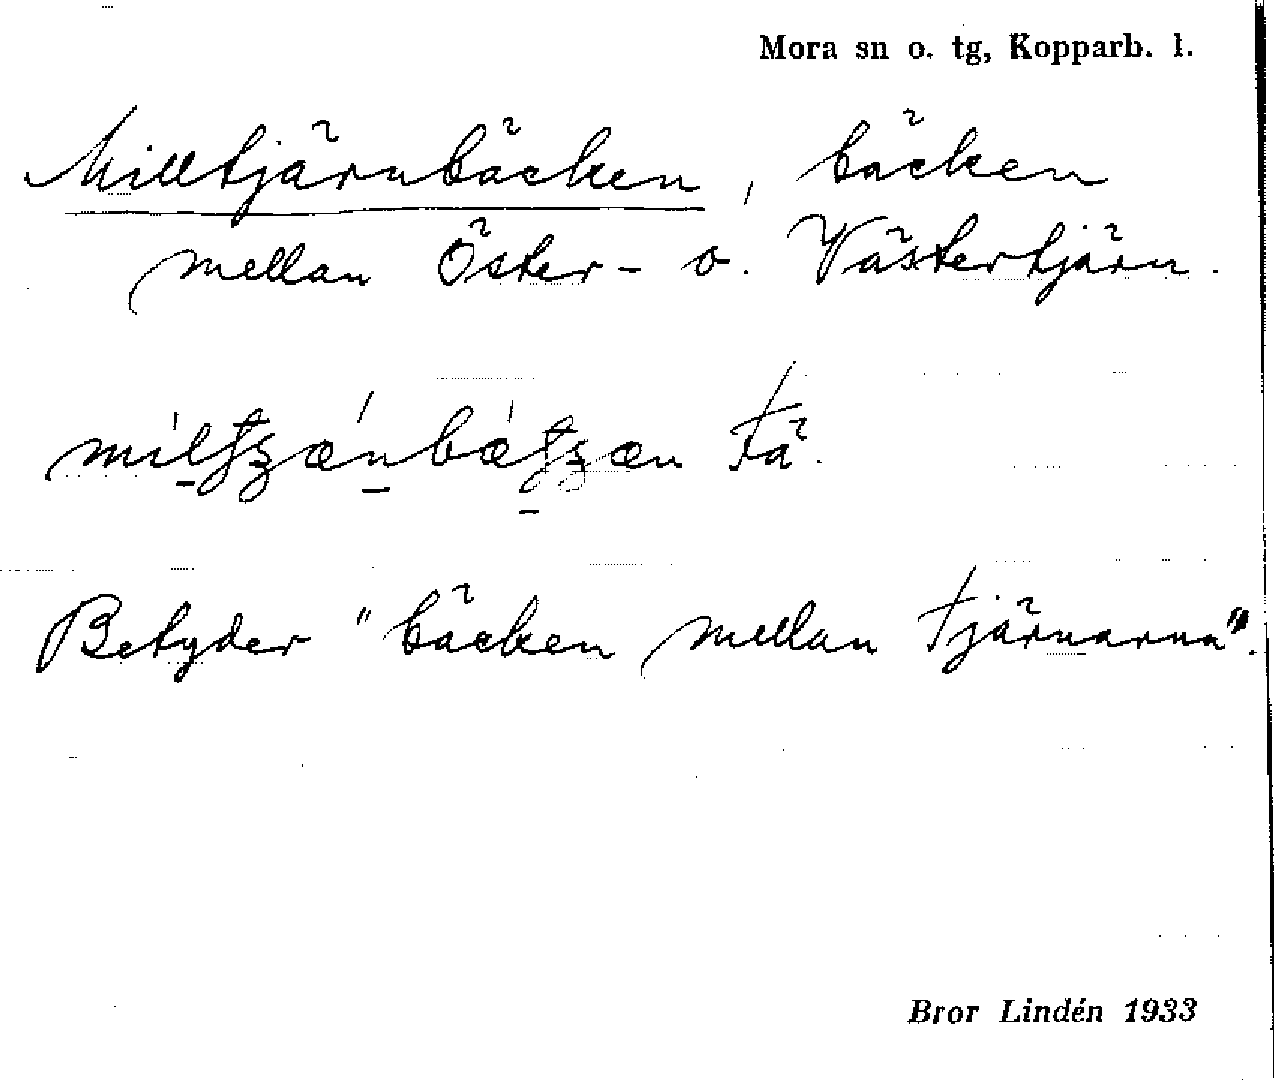 Mora sn o. tg, Kopparb. l.
Milltjärnbäcken, bäcken
mellan Öster- o. Västertjärn.
Få.
Betyder "bäcken mellan tjärnarna".
Bror Lindén 1933